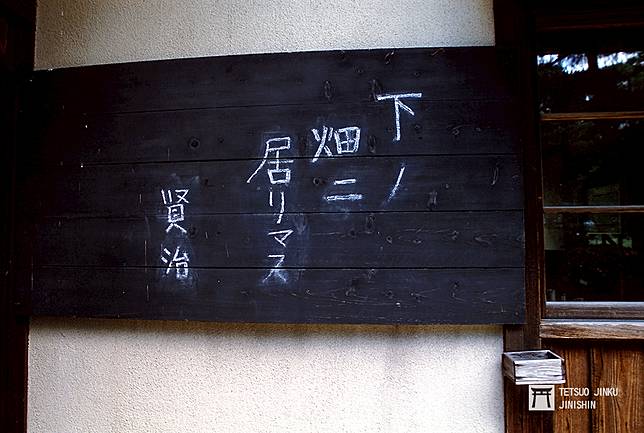 下ノ
畑ニ
居リマス
賢治
TETSUO JINKU
JINISHIN